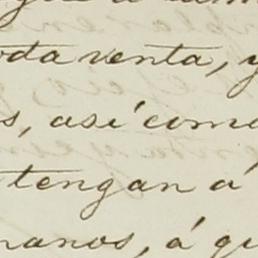 oda venta, y
s, así como
tengan á
manos, á qu